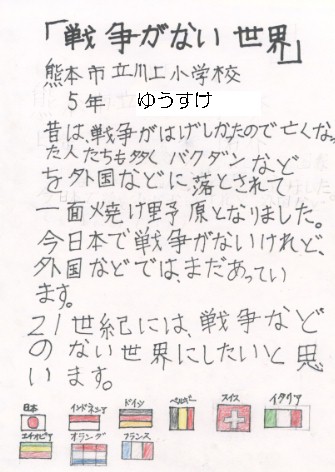 「戦争がない世界」
熊本市立川上小学校
5年 ゆうすけ
昔は、戦争がはげしかたので亡くなっ
た人たちも多く バクダンなど
を外国などに落とされて
一面火焼け野原となりました。
今日本で戦争がないけれど、
外国などでは、まだあってい
ます。
21世紀には、戦争など
のない世界にしたいと思
います。
日本 インドネシア ドイツ ベルギー スイス イタリア
エチオピア オランダ フランス